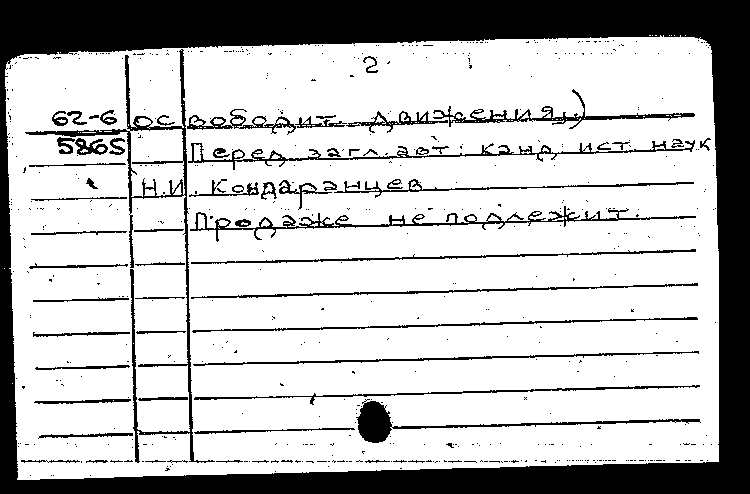 2
62-6 освободит. движения„)
5865 Перед загл. авт.: канд. ист. наук
Н.И. Кондаранцев.
Продаже не подлежит.